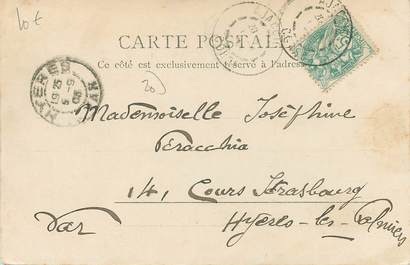 10 €
CARTE POSTALE
Ce côté est exclusivement réservé à l'adresse
HYERES
5 -9
03
VAR
20
Mademoiselle Joséphine
Peracchia
14, Cours Strasbourg
Hyères-les-Palmiers
Var